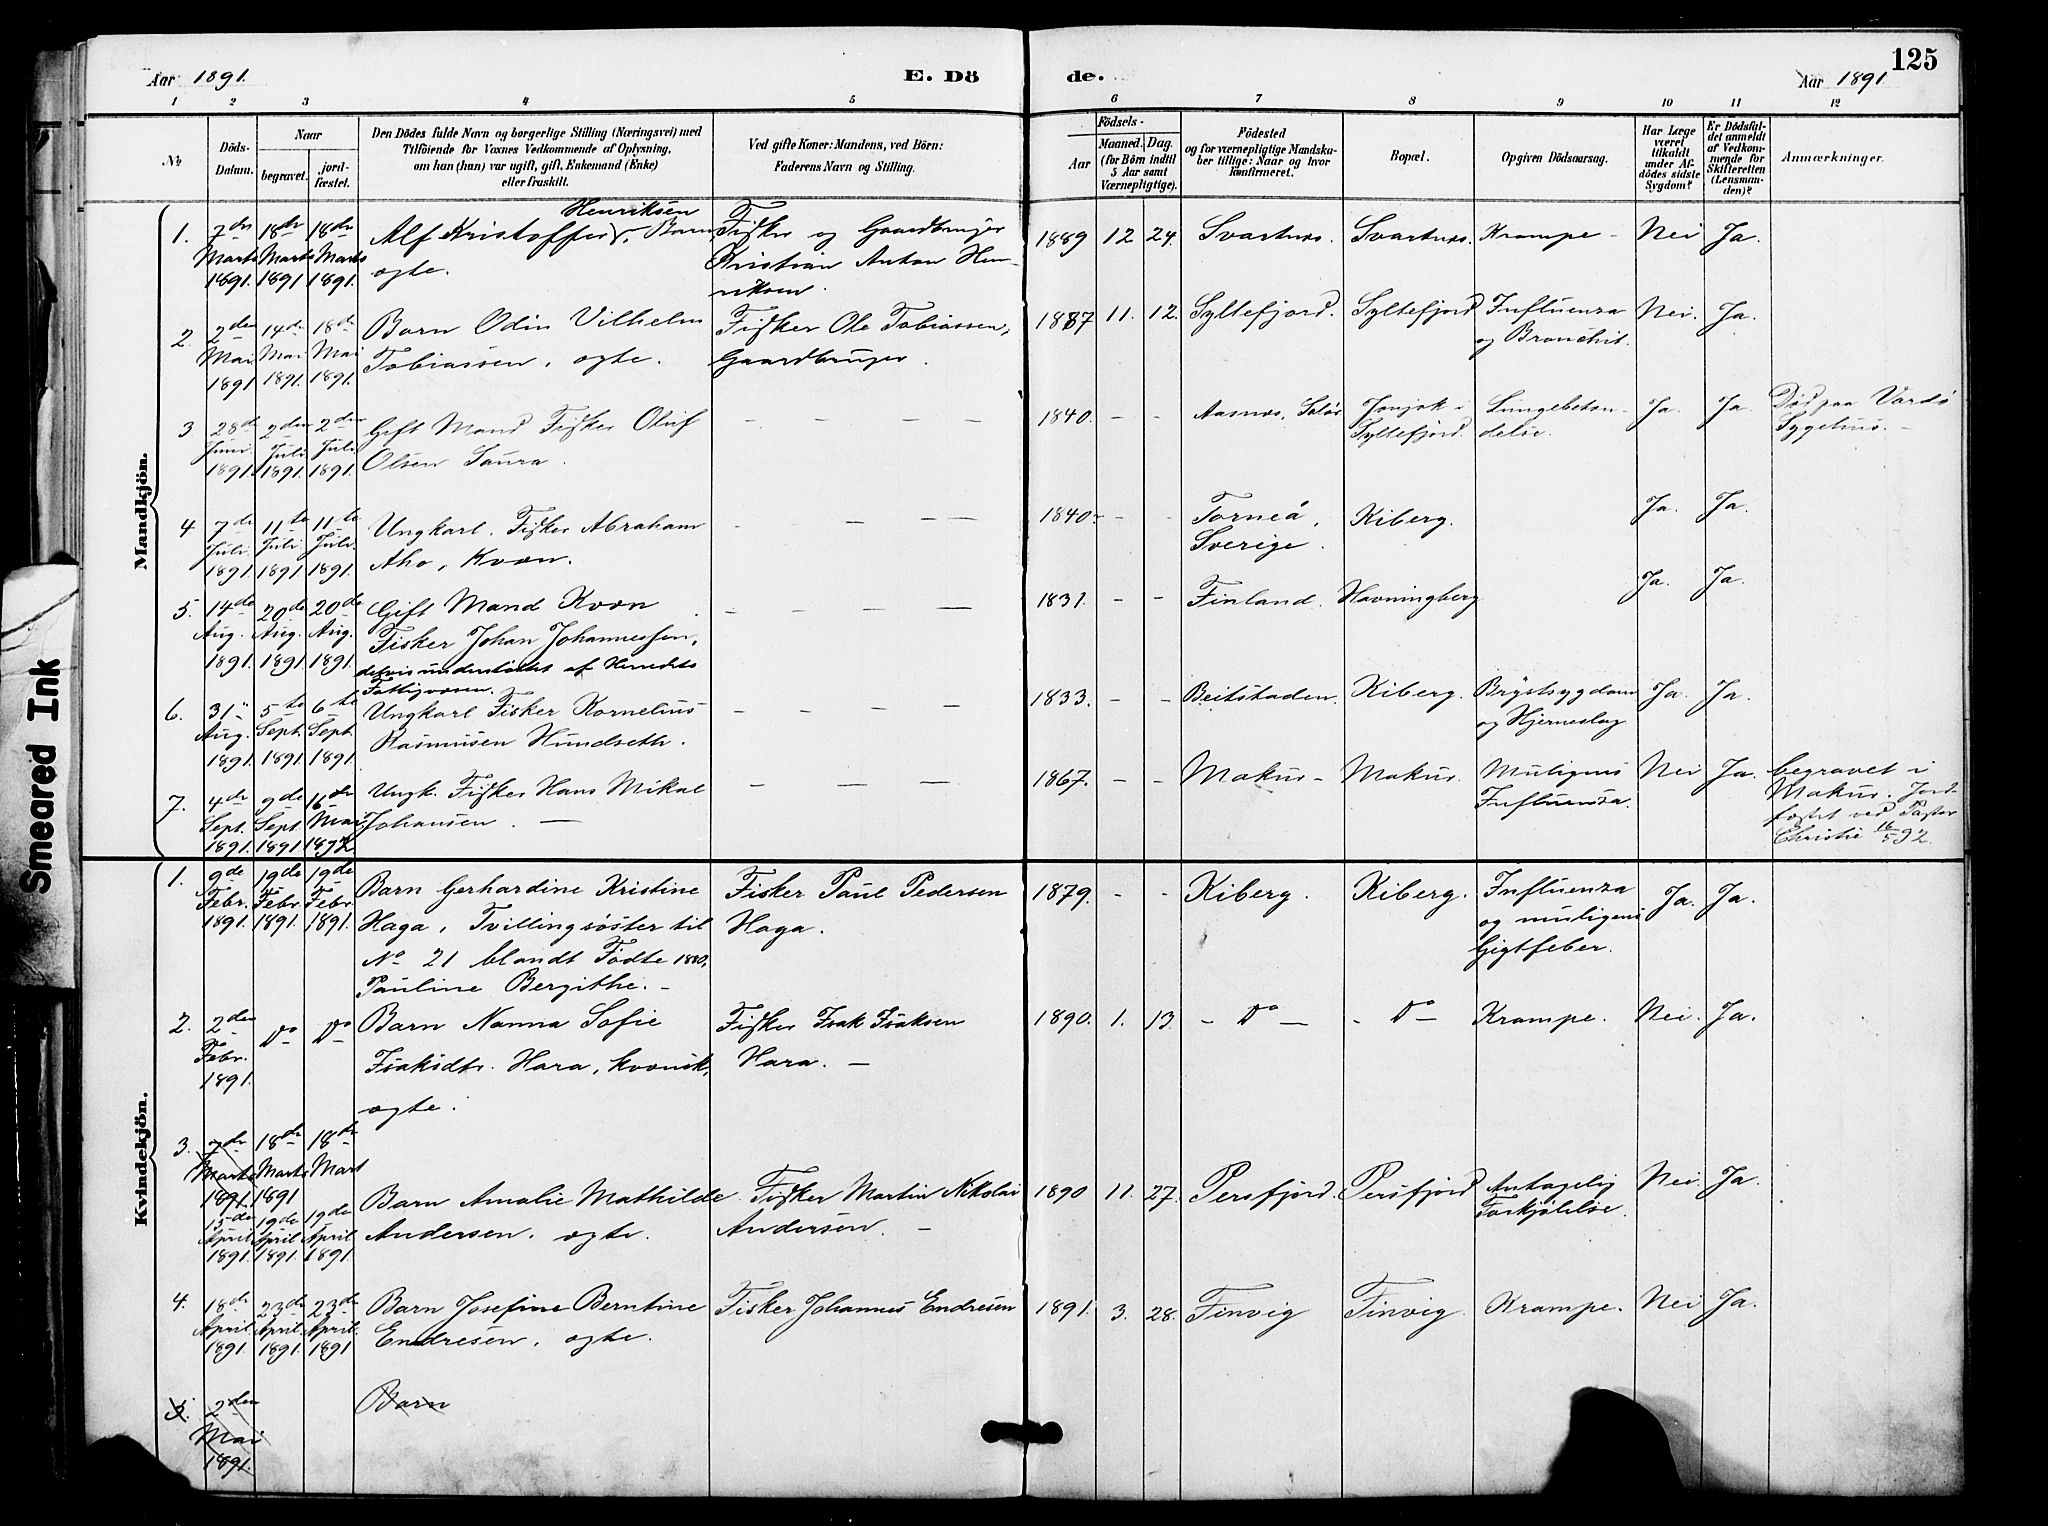 Aar 1891. E. Dö
de. Aar 1891 125
1 2 3 4 5 6 7 8 9 10 11 12
№
Döds-
Datum.
Naar
begravet.
jord-
fæstet.
Den Dödes fulde Navn og borgerlige Stilling (Næringsvei) med
Tilföiende for Voxnes Vedkommende af Oplysning,
om han (hun) var ugift, gift, Enkemand (Enke)
eller fraskilt.
Ved gifte Koner: Mandens, ved Börn:
Faderens Navn og Stilling.
Födsels-
Aar
Maaned. Dag.
(for Börn indtil
5 Aar samt
Værnepligtige).
Födested
og for værnepligtige Mandska-
ber tillige: Naar og hvor
konfirmeret.
Bopæl.
Opgiven Dödsaarsag.
Har Læge
været
tilkaldt
under Af-
dödes sidste
Sygdom?
Er Dödsfal-
det anmeldt
af Vedkom-
mende for
Skifteretten
(Lensman-
den)?
Anmærkninger.
Mandkjön.
1. 7de Marts 1891. 18de Marts 1891 18de Marts 1891.
Alf Kristoffer Henriksen, Barn,
ægte.
Fisker og Gaardbruger
Kristian Anton Hen-
riksen.
1889 12 24. Svartnæs. Svartnæs. Krampe - Nei Ja.
2. 2den Mai 1891 14de Mai 1891. 18de Mai 1891.
Barn Odin Vilhelm
Tobiassen, ægte.
Fisker Ole Tobiassen,
Gaardbruger.
1887 11. 12. Syltefjord. Syltefjord Influenza
og Bronchit. Nei. Ja.
3 28de Juni 1891. 2den Juli 1891. 2den Juli 1891.
Gift Mand Fisker Oluf
Olsen Saura.
- - - - -
1840. - - Aasnæs, Solør
Syltefjord. Lungebeten-
delse. Ja. Ja Død paa Vardø
Sygehus. -
4 7de Juli 1891. 11te Juli 1891. 11te Juli 1891.
Ungkarl. Fisker Abraham
Aho, Kvæn.
- - - - -
1840. - - Torneå,
Sverige. Kiberg. Ja. Ja.
5. 14de Aug. 1891. 20de Aug. 1891. 20de Aug. 1891.
Gift Mand Kvæn
Fisker Johan Johannessen,
delvis understøttet af Herredets
Fattigvæsen.
- - - - -
1831. - - Finland. Havningberg Ja. Ja.
6. 31" Aug. 1891. 5te Sept. 1891. 6te Sept. 1891.
Ungkarl Fisker Kornelius
Rasmusen Hundseth.
- - - - -
1833. - - Beitstaden. Kiberg. Brystsygdom
og Hjerneslag Ja. Ja.
7. 4de Sept. 1891. 9de Sept. 1891 16de Mai 1892
Ungk. Fisker Hans Mikal
Johansen. -
- - - -
1867. - - Makur - Makur. Muligens
Influensa. Nei Ja. begravet i
Makur. Jord-
fæstet ved Pastor
Christie 16/5 92.
Kvindekjön.
1. 9de Febr. 1891. 19de Febr 1891. 19de Febr 1891.
Barn Gerhardine Kristine
Haga, Tvillingsøster til
No 21 blandt Fødte 1880,
Pauline Bergithe. -
Fisker Paul Pedersen
Haga.
1879. - - Kiberg. Kiberg. Influenza
og muligens
Gigtfeber. Ja. Ja.
2. 2den Febr. 1891. Do Do
Barn Nanna Sofie
Isaksdtr. Hara, kvænsk,
ægte.
Fisker Isak Isaksen
Hara. -
1890. 1. 13 - Do - - Do - Krampe. Nei. Ja.
3. 7de Marts 1891. 18de Marts 1891 18de Mart
15de April 1891. 19de April 1891. 19de April 1891.
Barn Amalie Mathilde
Andersen. ægte.
Fisker Martin Nikolai
Andersen. -
1890 11. 27. Persfjord. Persfjord Antagelig
Forkjølelse. Nei. Ja.
4. 18de April 1891. 23de April 1891. 23de April 1891
Barn Josefine Berntine
Endresen, ægte.
Fisker Johannes Endresen
1891. 3. 28. Finvig Finvig. Krampe. Nei Ja.
5. 2den Mai 1891.
Barn
Smeared Ink